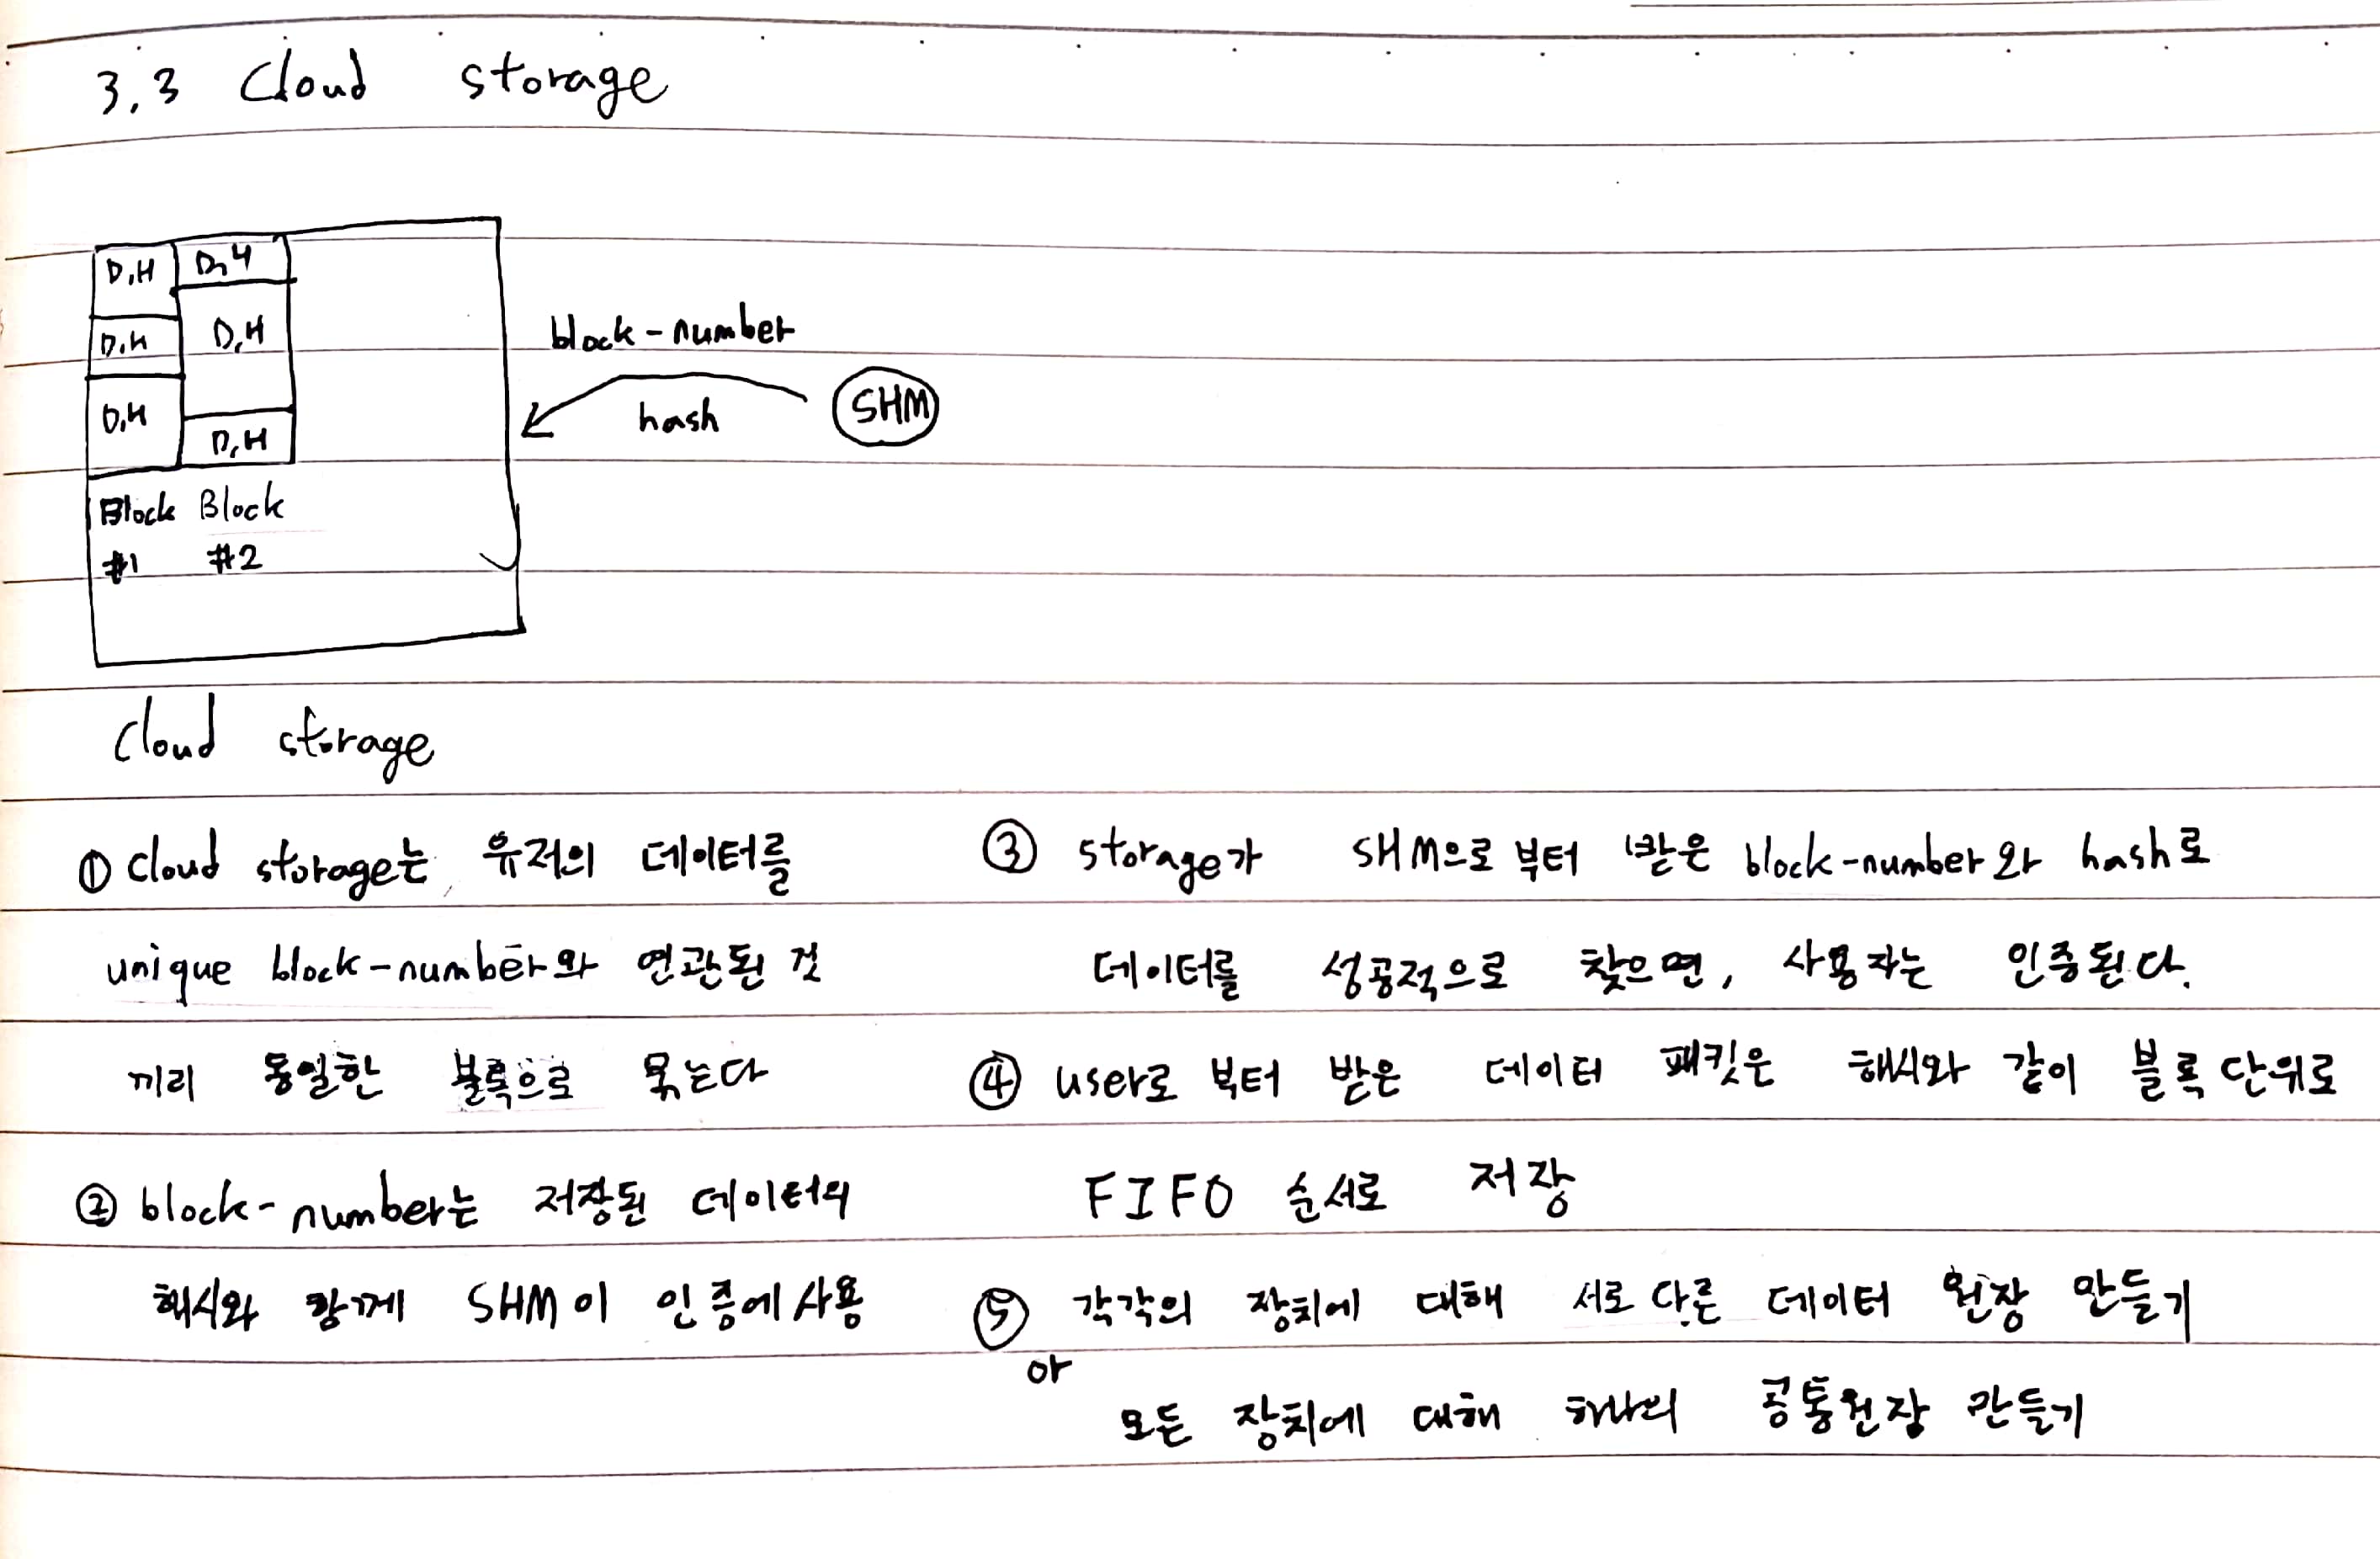 3.3 Cloud storage
D,H D,H
D,H D,H
D,H D,H
Block Block
#1 #2
block-number
hash
SHM
cloud storage
① cloud storage는 유저의 데이터를
unique block-number와 연관된 것
끼리 동일한 블록으로 묶는다
② block-number는 저장된 데이터의
해시와 함께 SHM이 인증에 사용
③ storage가 SHM으로 부터 받은 block-number와 hash로
데이터를 성공적으로 찾으면, 사용자는 인증된다.
④ user로 부터 받은 데이터 패킷은 해시와 같이 블록 단위로
FIFO 순서로 저장
⑤ 각각의 장치에 대해 서로 다른 데이터 원장 만들기
or
모든 장치에 대해 하나의 공통원장 만들기